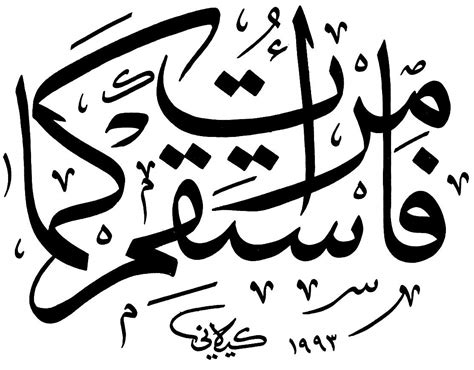 فَاسْتَقِمْ كَمَا أُمِرْتَ
كيلاني ١٩٩٣